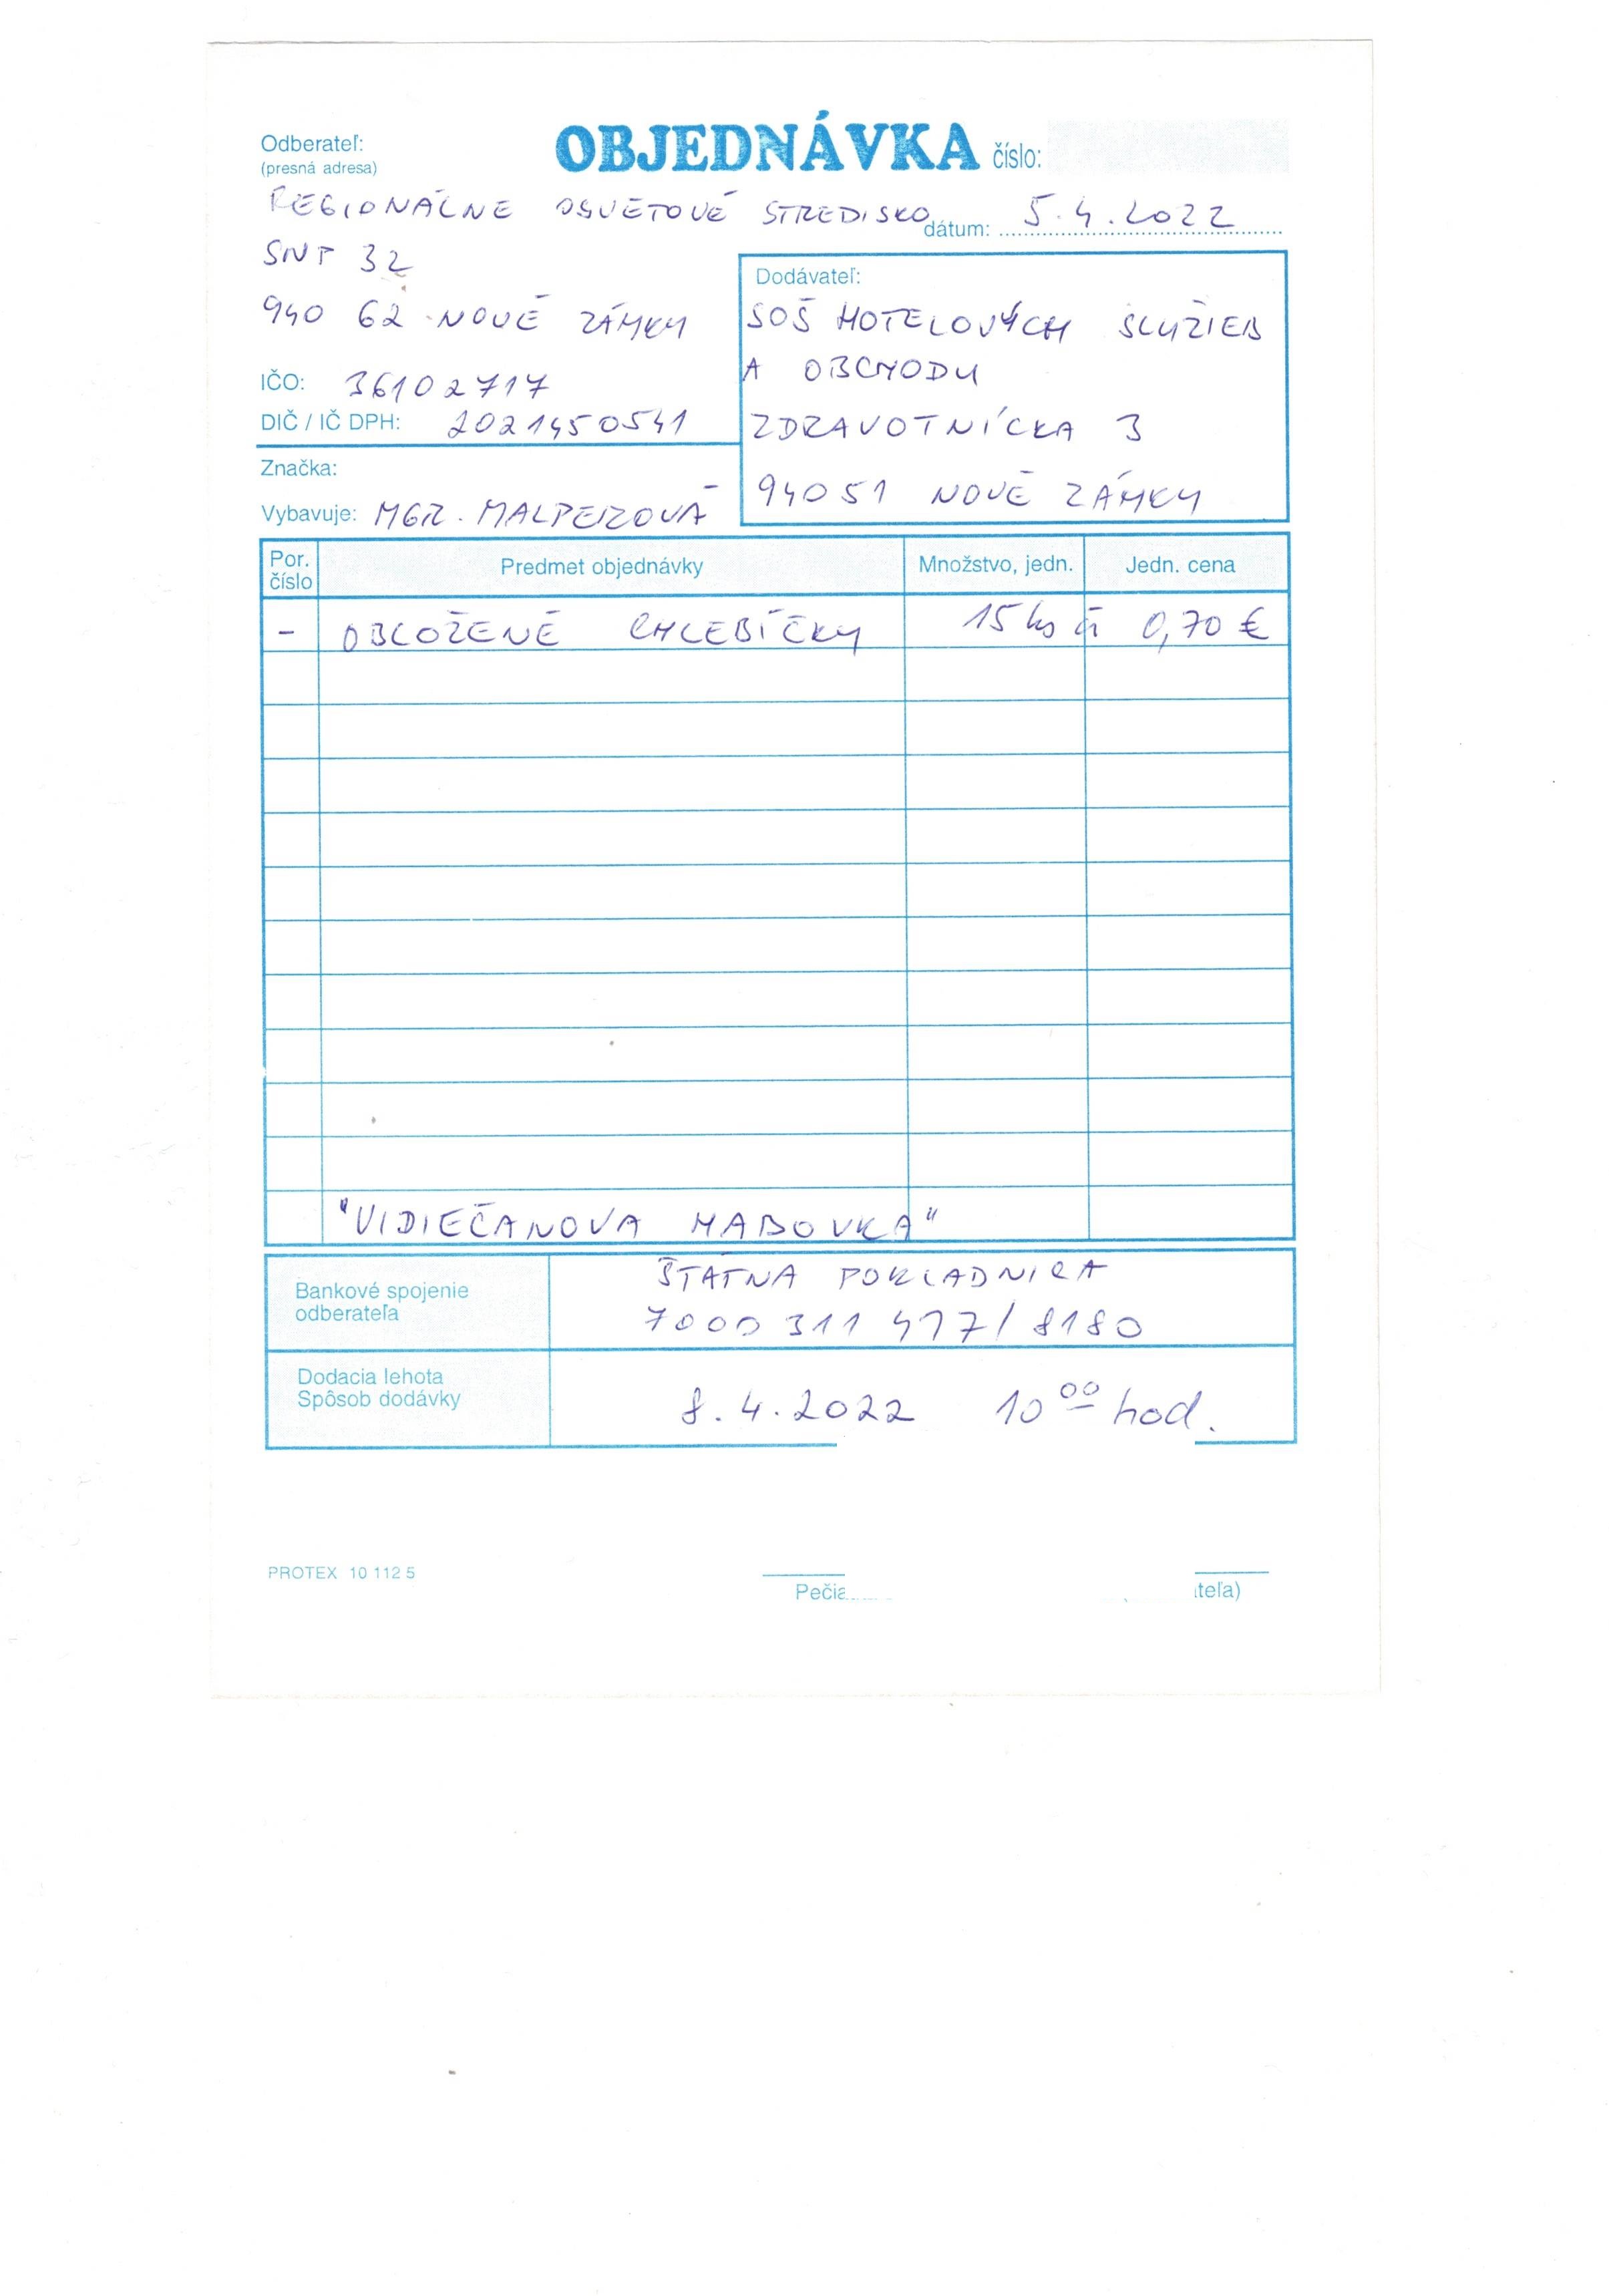 Odberateľ:
(presná adresa)
OBJEDNÁVKA číslo:
REGIONÁLNE OSVETOVÉ STREDISKO
dátum: 5.4.2022
SNP 32
940 62 NOVÉ ZÁMKY
IČO: 36102717
DIČ / IČ DPH: 2021450541
Značka:
Vybavuje: MGR. MALPEROVÁ
Dodávateľ:
SOŠ HOTELOVÝCH SLUŽIEB
A OBCHODU
ZDRAVOTNÍCKA 3
94051 NOVÉ ZÁMKY
Por. číslo Predmet objednávky Množstvo, jedn. Jedn. cena
- OBLOŽENÉ CHLEBÍČKY 15 ks á 0,70 €
"VIDIEČANOVA HABOVKA"
Bankové spojenie
odberateľa
ŠTÁTNA POKLADNICA
7000 311 477/8180
Dodacia lehota
Spôsob dodávky
8.4.2022 10 00 hod.
PROTEX 10 112 5